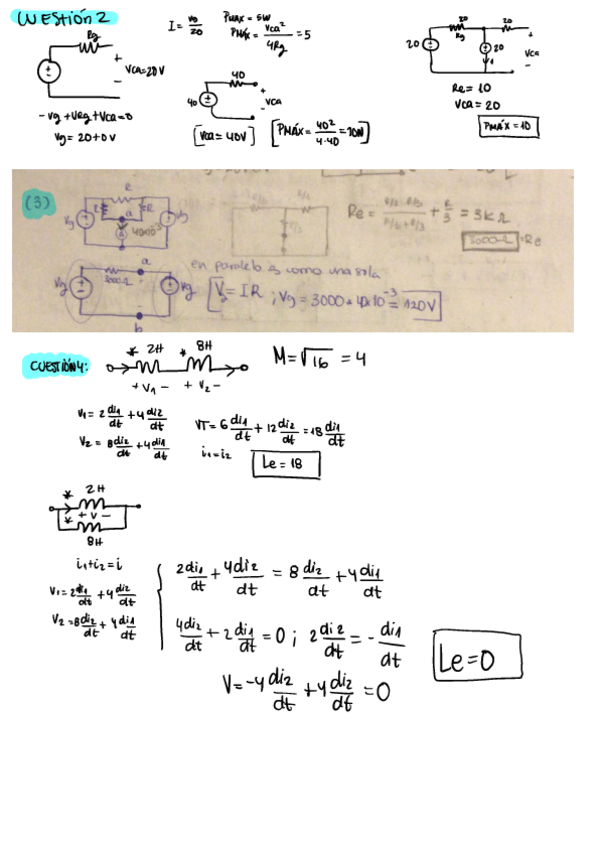 CUESTIÓN 2
Rg
+
Vca=20V
-
-Vg+VRg+Vca=0
Vg= 20+0V
I= Vg/20
PMAX= 5W
PMÁX= Vca²/4Rg =5
40
40
+
Vca
-
[Vca=40V]
[PMÁX= 40²/4·40 = 10W]
20
Rg
20
20
20
+
Vca
-
Re=10
Vca=20
PMÁX=10
(3)
R
R
R
a
Vg
Vg
A
Re= + R/3 = 3kΩ
3000Ω=Re
a
3000Ω
Vg
Vg
b
en paralelo es como una sola
Vg=IR ; Vg=3000·40·10⁻³=120V
CUESTIÓN 4:
* 2H
* 8H
+ V1 - + V2 -
M=√16 = 4
V1= 2 di1/dt +4 di2/dt
V2= 8 di2/dt +4 di1/dt
VT= 6 di1/dt + 12 di2/dt = 18 di1/dt
i1=i2
Le=18
* 2H
* + V -
8H
i1+i2=i
V1=2 di1/dt +4 di2/dt
V2=8 di2/dt + 4 di1/dt
2di1/dt + 4di2/dt = 8 di2/dt +4 di1/dt
4di2/dt + 2 di1/dt =0 ; 2 di2/dt = - di1/dt
V=-4 di2/dt +4 di2/dt =0
Le=0